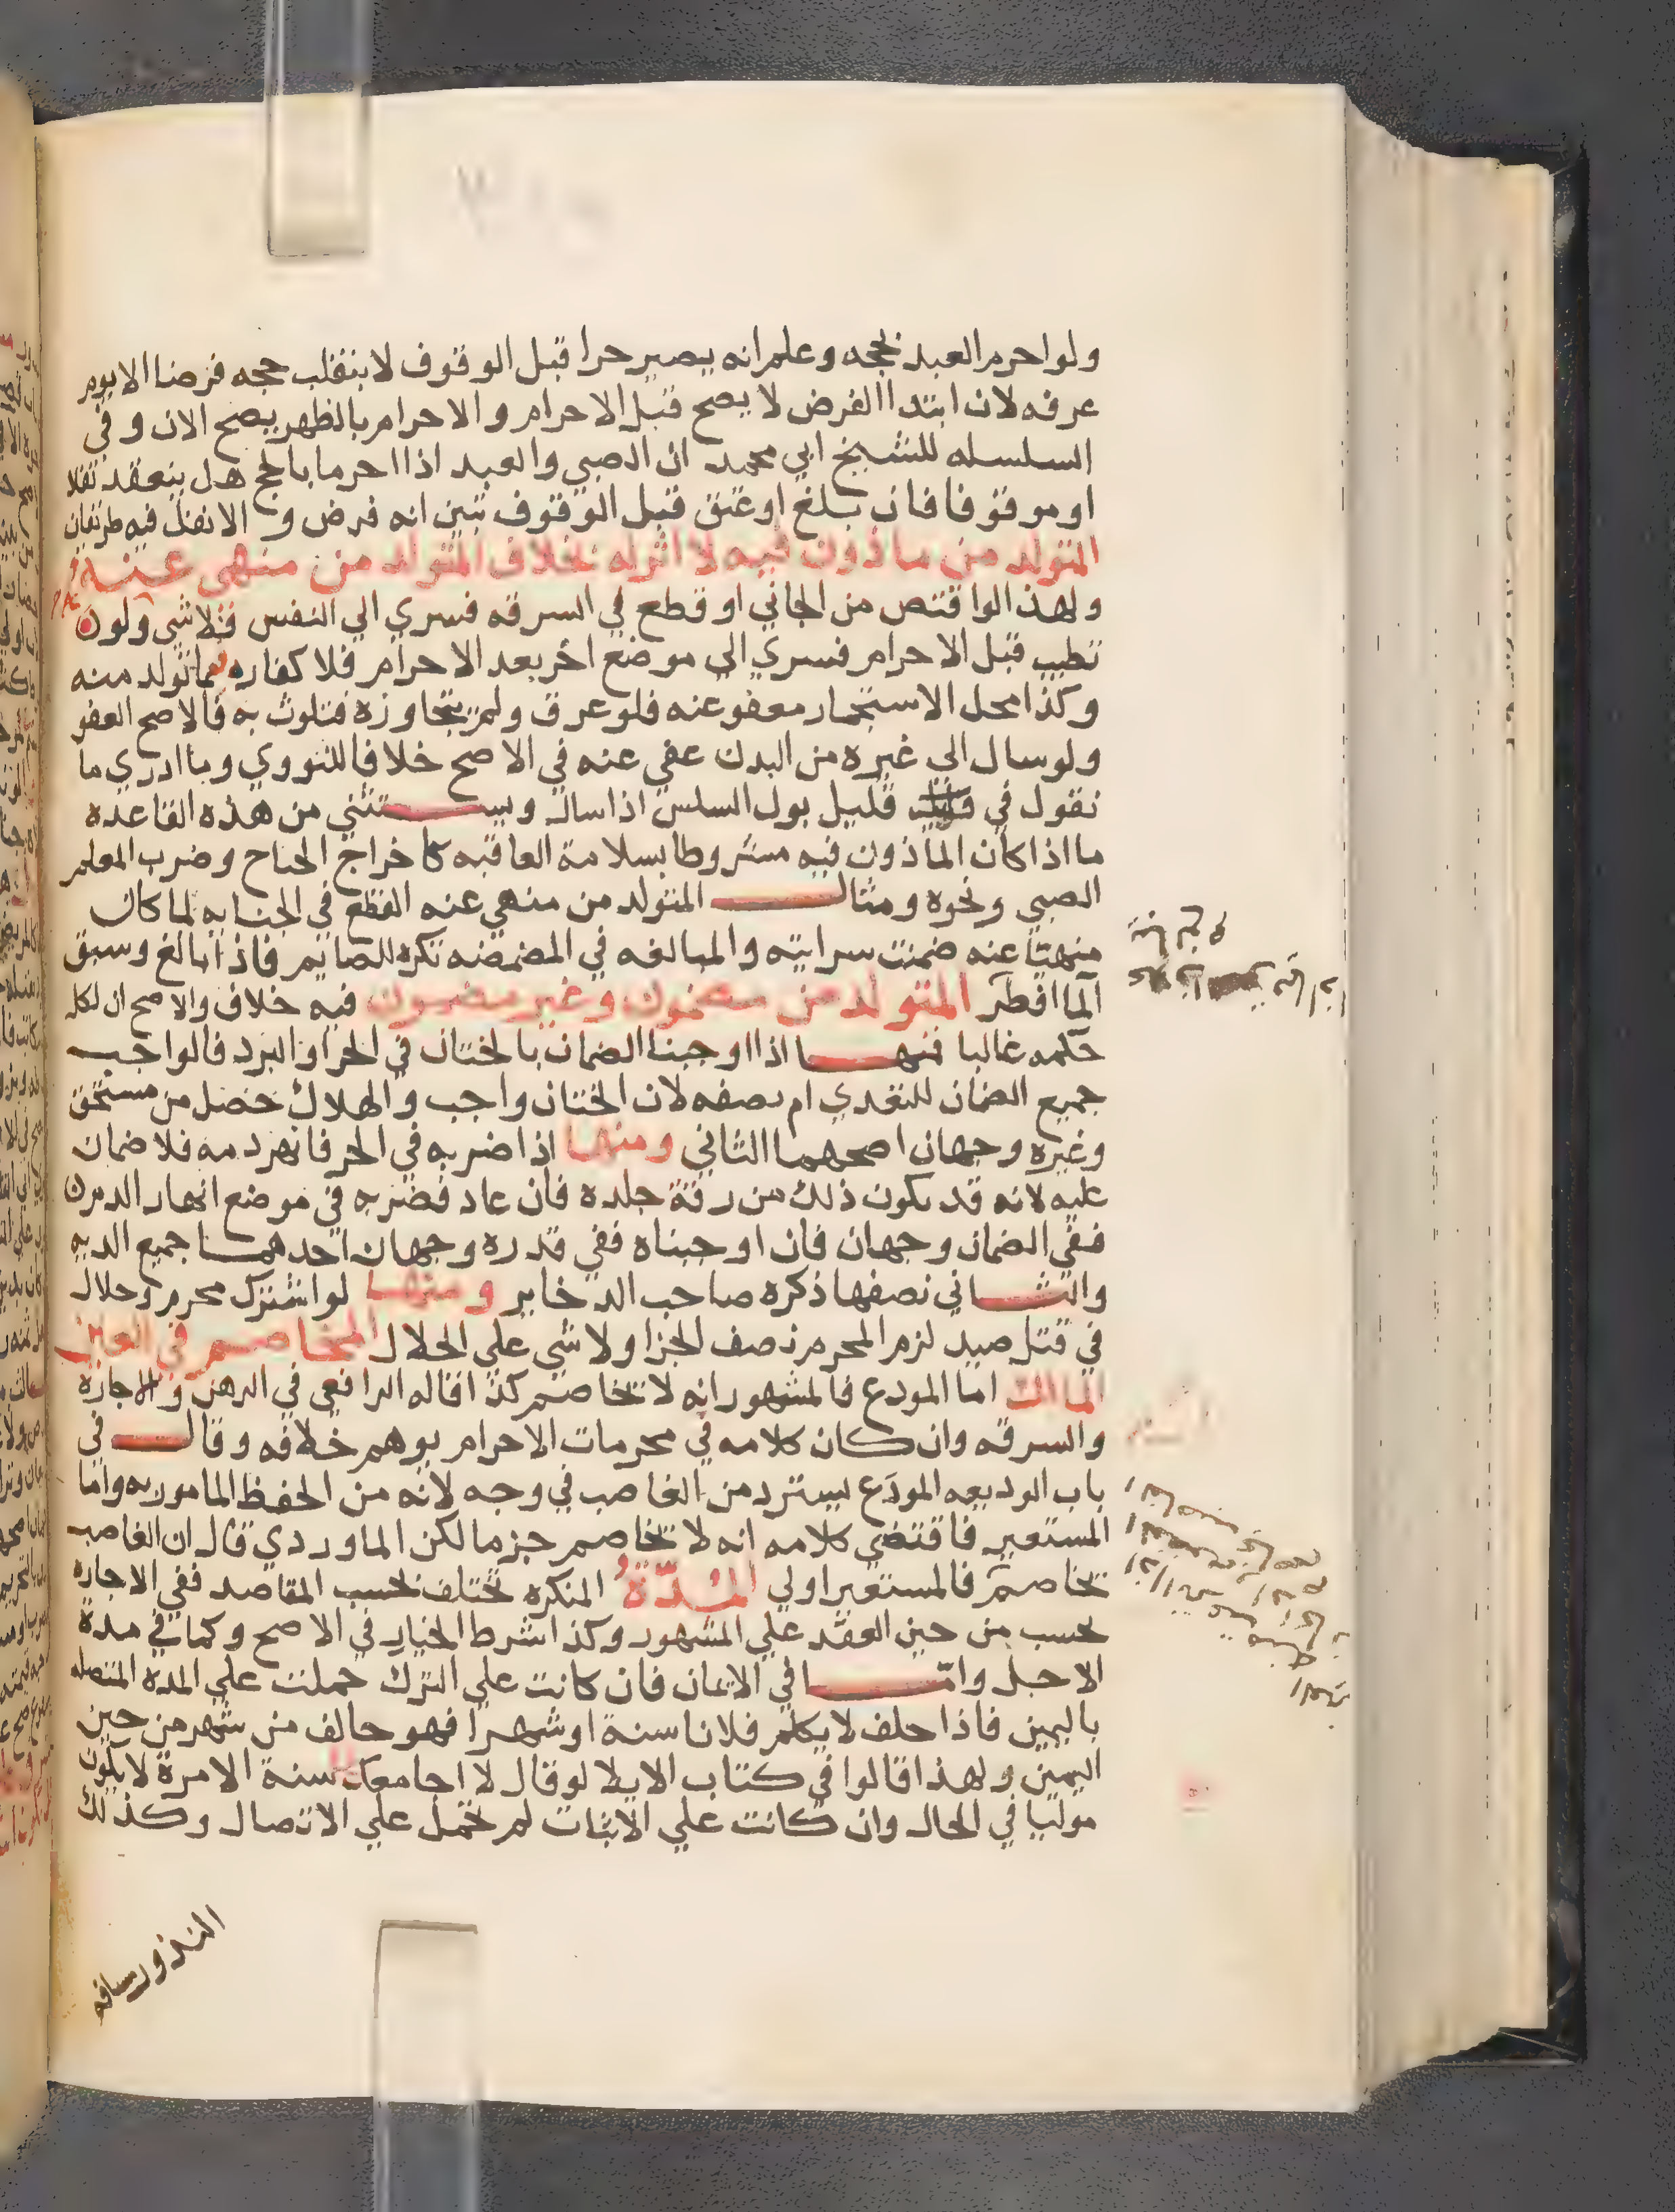 ولو احرم العبد بحجه وعلم انه يصير حرا قبل الوقوف لا ينقلب حجه فرضا الا يوم
عرفه لان ابتدا الفرض لا يصح قبل الاحرام والاحرام بالظهر يصح الان وفي
السلسله للشيخ ابي محمد ان الصبي والعبد اذا احرما بالحج هل ينعقد نفلا
او موقوفا فان بلغ او عتق قبل الوقوف تبين انه فرض والا نفل فيه طريقان
المتولد من ماذون فيه لا اثر له بخلاف المتولد من منهي عنه
ولهذا لو اقتص من الجاني او قطع في السرقه فسري الي النفس فلا شي ولو
تطيب قبل الاحرام فسري الى موضع اخر بعد الاحرام فلا كفاره فيما تولد منه
وكذا محل الاستجمار معفو عنه فلو عرق ولم يتجاوزه فتلوث به فالاصح العفو
ولو سال الي غيره من البدن عفي عنه في الاصح خلافا للنووي وما ادري ما
نقول في قليل بول السلس اذا سال ويستثني من هذه القاعده
ما اذا كان الماذون فيه مشروطا بسلامة العاقبه كاخراج الجناح وضرب المعلم
الصبي ونحوه ومثال المتولد من منهي عنه القطع في الجنايه لما كان
منهيا عنه ضمنت سرايته والمبالغه في المضمضه تكره للصايم فاذا بالغ وسبق
الما افطر المتولد من مضمون وغير مضمون فيه خلاف والاصح ان لكله
حكمه غالبا فمنها اذا اوجبنا الضمان بالختان في الحر او البرد فالواجب
جميع الضمان للتعدي ام نصفه لان الختان واجب والهلاك حصل من مستحق
وغيره وجهان اصحهما الثاني ومنها اذا ضربه في الحر فانهر دمه فلا ضمان
عليه لانه قد يكون ذلك من رقة جلده فان عاد فضربه في موضع انهار الدم
ففي الضمان وجهان فان اوجبناه ففي قدره وجهان احدهما جميع الديه
والثاني نصفها ذكره صاحب الدخاير ومنها لو اشترك محرم وحلال
في قتل صيد لزم المحرم نصف الجزا ولا شي علي الحلال المخاصم في العين
المالك اما المودع فالمشهور انه لا يخاصم كذا قاله الرافعي في الرهن والاجارة
والسرقه وان كان كلامه في محرمات الاحرام يوهم خلافه وقال في
باب الوديعه المودَع يسترد من الغاصب في وجه لانه من الحفظ المامور به واما
المستعير فاقتضي كلامه انه لا يخاصم جزما لكن الماوردي قال ان الغاصب
يخاصم فالمستعير اولي المُدّةُ المنكره تختلف بحسب المقاصد ففي الاجاره
تحسب من حين العقد علي المشهور وكذا شرط الخيار في الاصح وكما في مدة
الاجل وامّا في الايمان فان كانت علي الترك حملت علي المدة المتصله
باليمين فاذا حلف لا يكلم فلانا سنة او شهرا فهو حالف من شهر من حين
اليمين ولهذا قالوا في كتاب الايلا لو قال لا اجامعك سنة الا مرة لا يكون
موليا في الحال وان كانت علي الاثبات لم تحمل علي الاتصال وكذلك